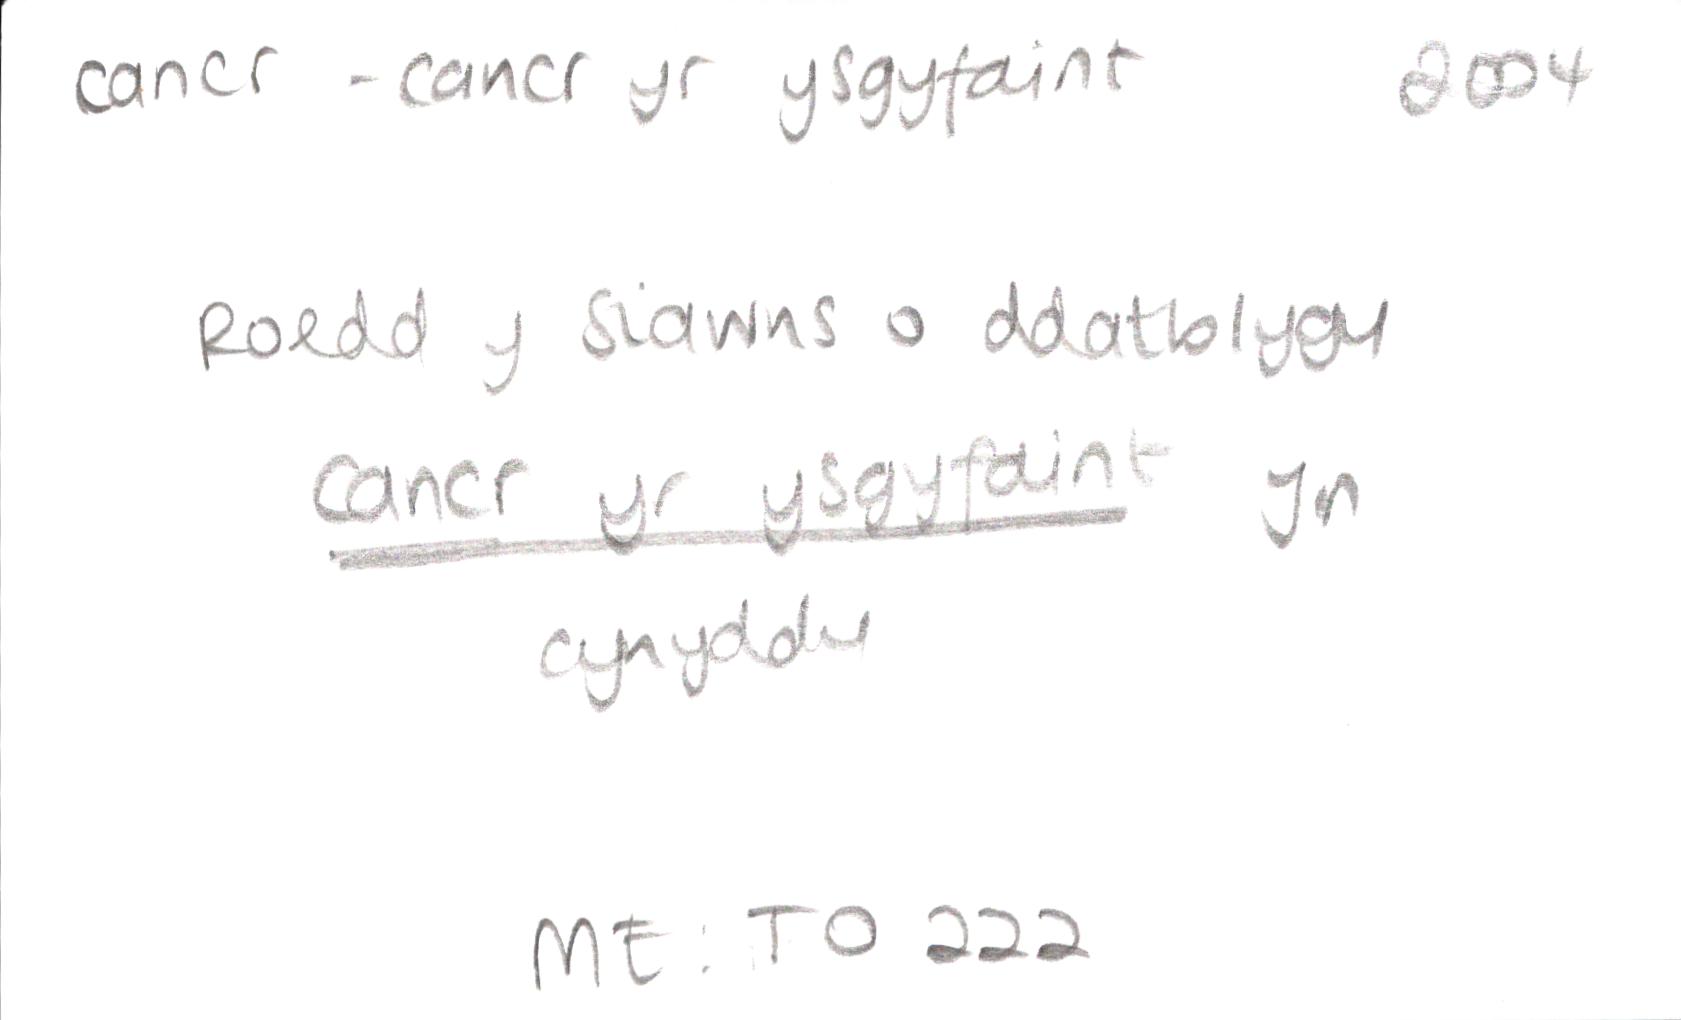 cancr - cancr yr ysgyfaint 2004
Roedd y siawns o ddatblygu
cancr yr ysgyfaint yn
cynyddu
ME: TO 222